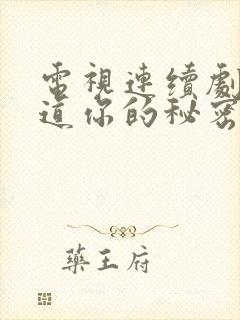 電視連續劇
道你的秘密
藥王府